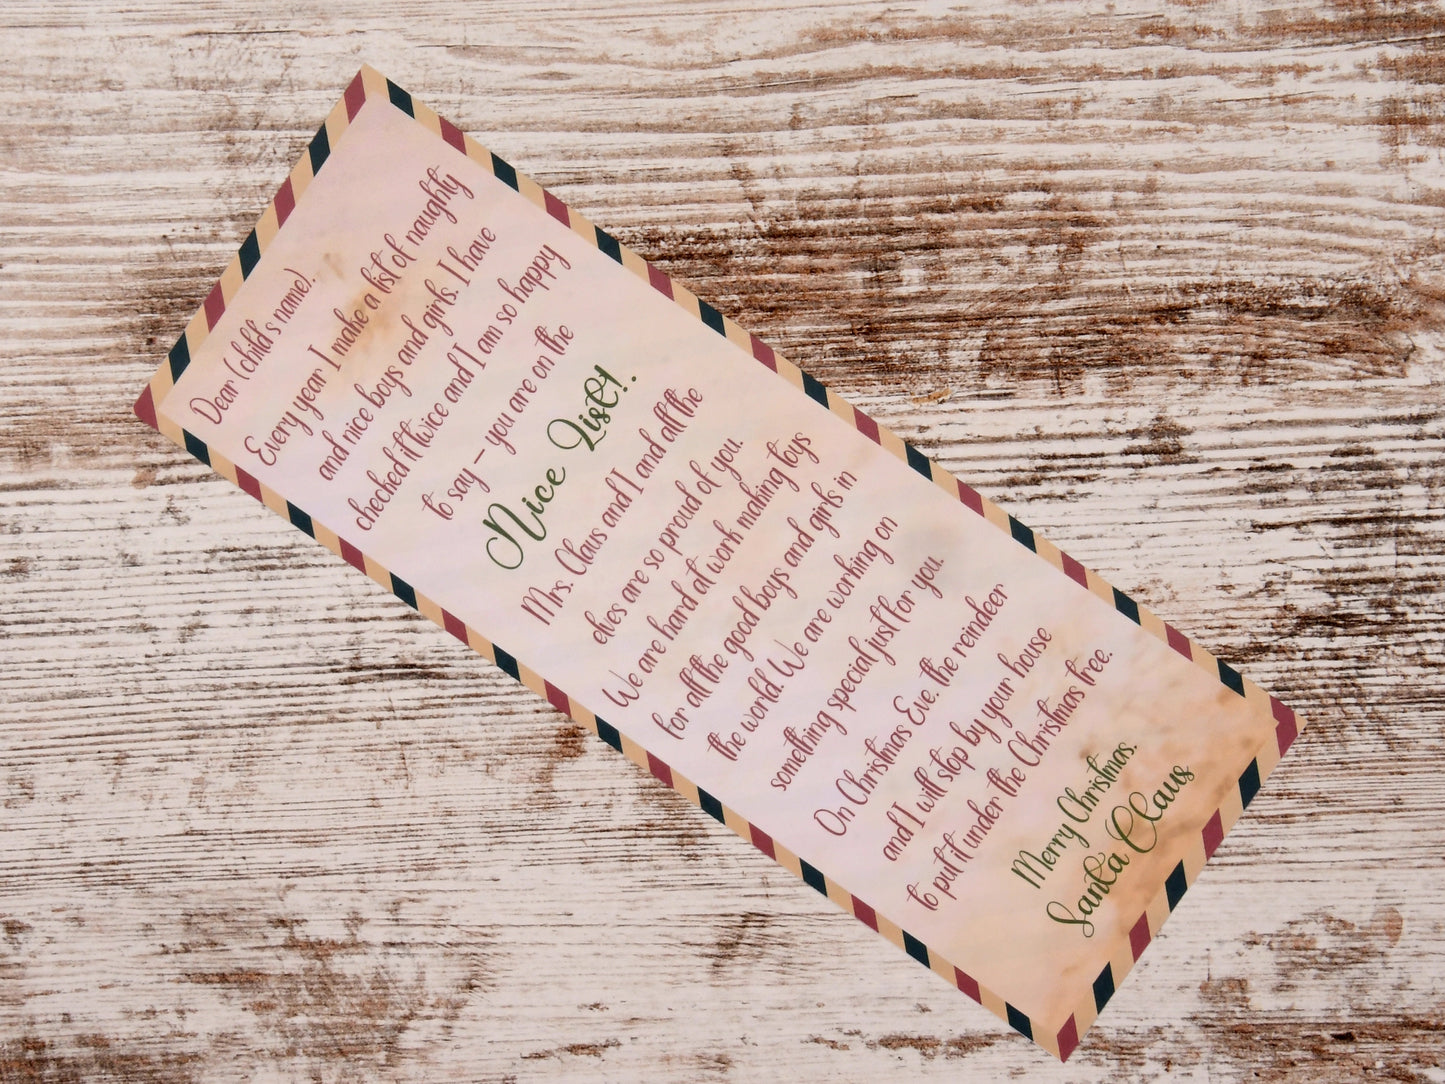 Dear (child's name),
Every year I make a list of naughty
and nice boys and girls. I have
checked it twice and I am so happy
to say – you are on the
Nice List!.
Mrs. Claus and I and all the
elves are so proud of you.
We are hard at work making toys
for all the good boys and girls in
the world. We are working on
something special just for you.
On Christmas Eve, the reindeer
and I will stop by your house
to put it under the Christmas tree.
Merry Christmas,
Santa Claus